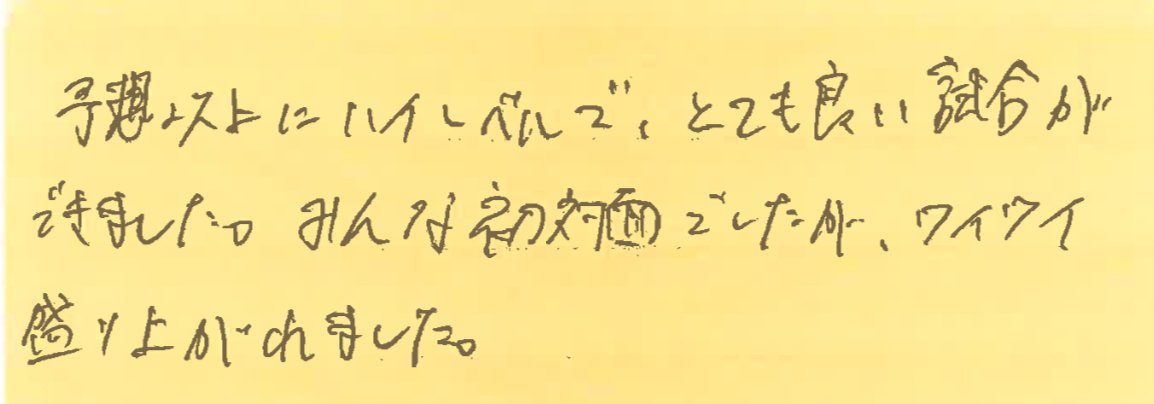 予想以上にハイレベルで、とても良い試合が
できました。みんな初対面でしたが、ワイワイ
盛り上がれました。